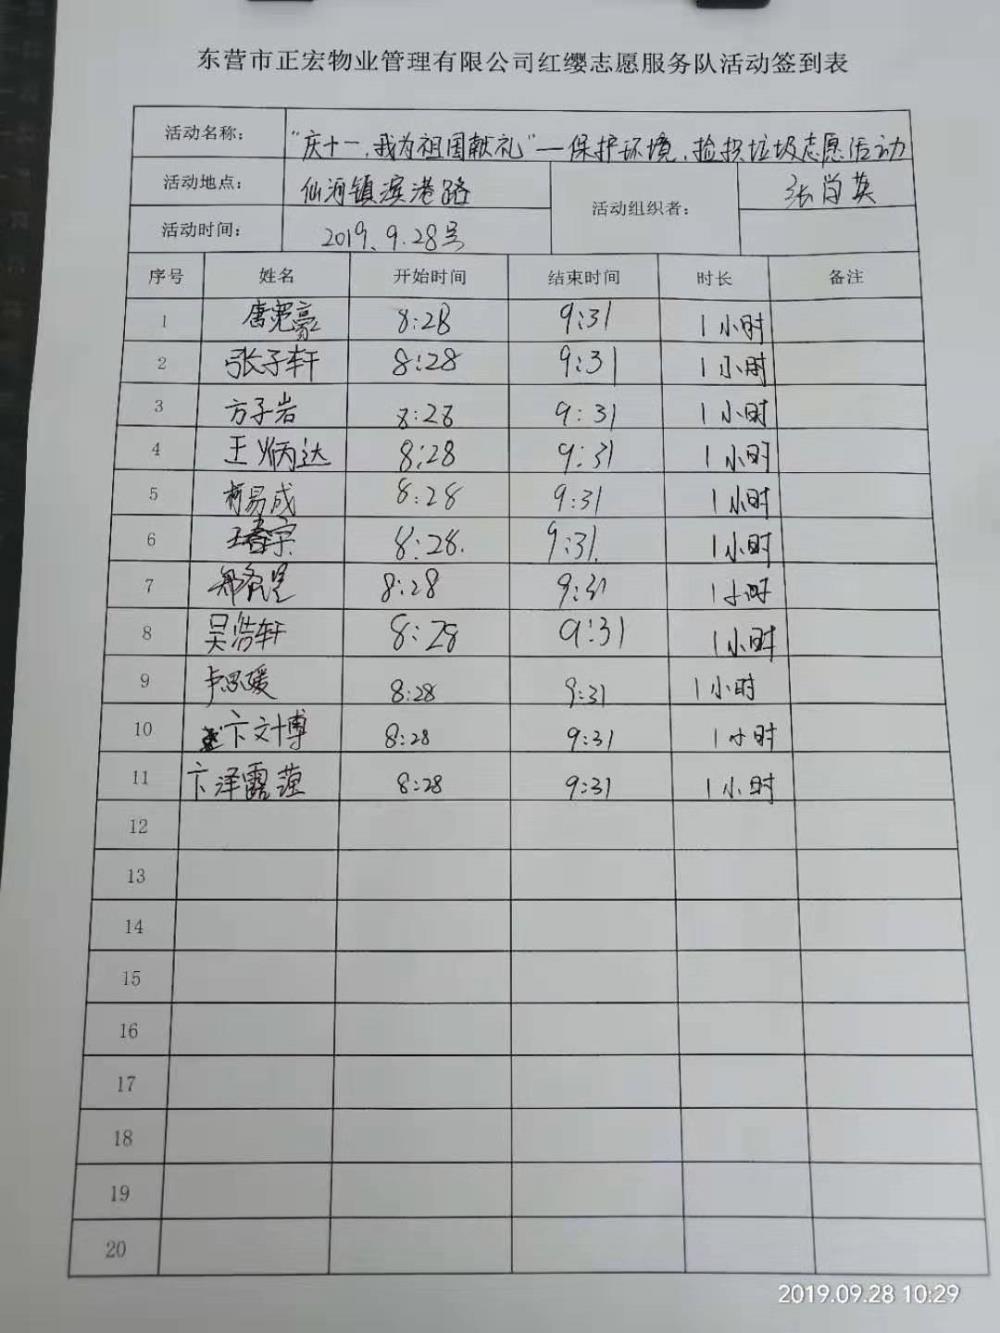 东营市正宏物业管理有限公司红缨志愿服务队活动签到表
活动名称： "庆十一，我为祖国献礼"—保护环境，捡拾垃圾志愿活动
活动地点： 仙河镇滨港路 活动组织者： 张尚英
活动时间： 2019、9.28号
序号 姓名 开始时间 结束时间 时长 备注
1 唐宽豪 8:28 9:31 1小时
2 张子轩 8:28 9:31 1小时
3 方子岩 8:28 9:31 1小时
4 王炳达 8:28 9:31 1小时
5 易成 8:28 9:31 1小时
6 王春宇 8:28. 9:31. 1小时
7 郑 8:28 9:31 1小时
8 吴浩轩 8:28 9:31 1小时
9 卢思媛 8:28 9:31 1小时
10 卞文博 8:28 9:31 1小时
11 卞泽露莹 8:28 9:31 1小时
12
13
14
15
16
17
18
19
20
2019.09.28 10:29